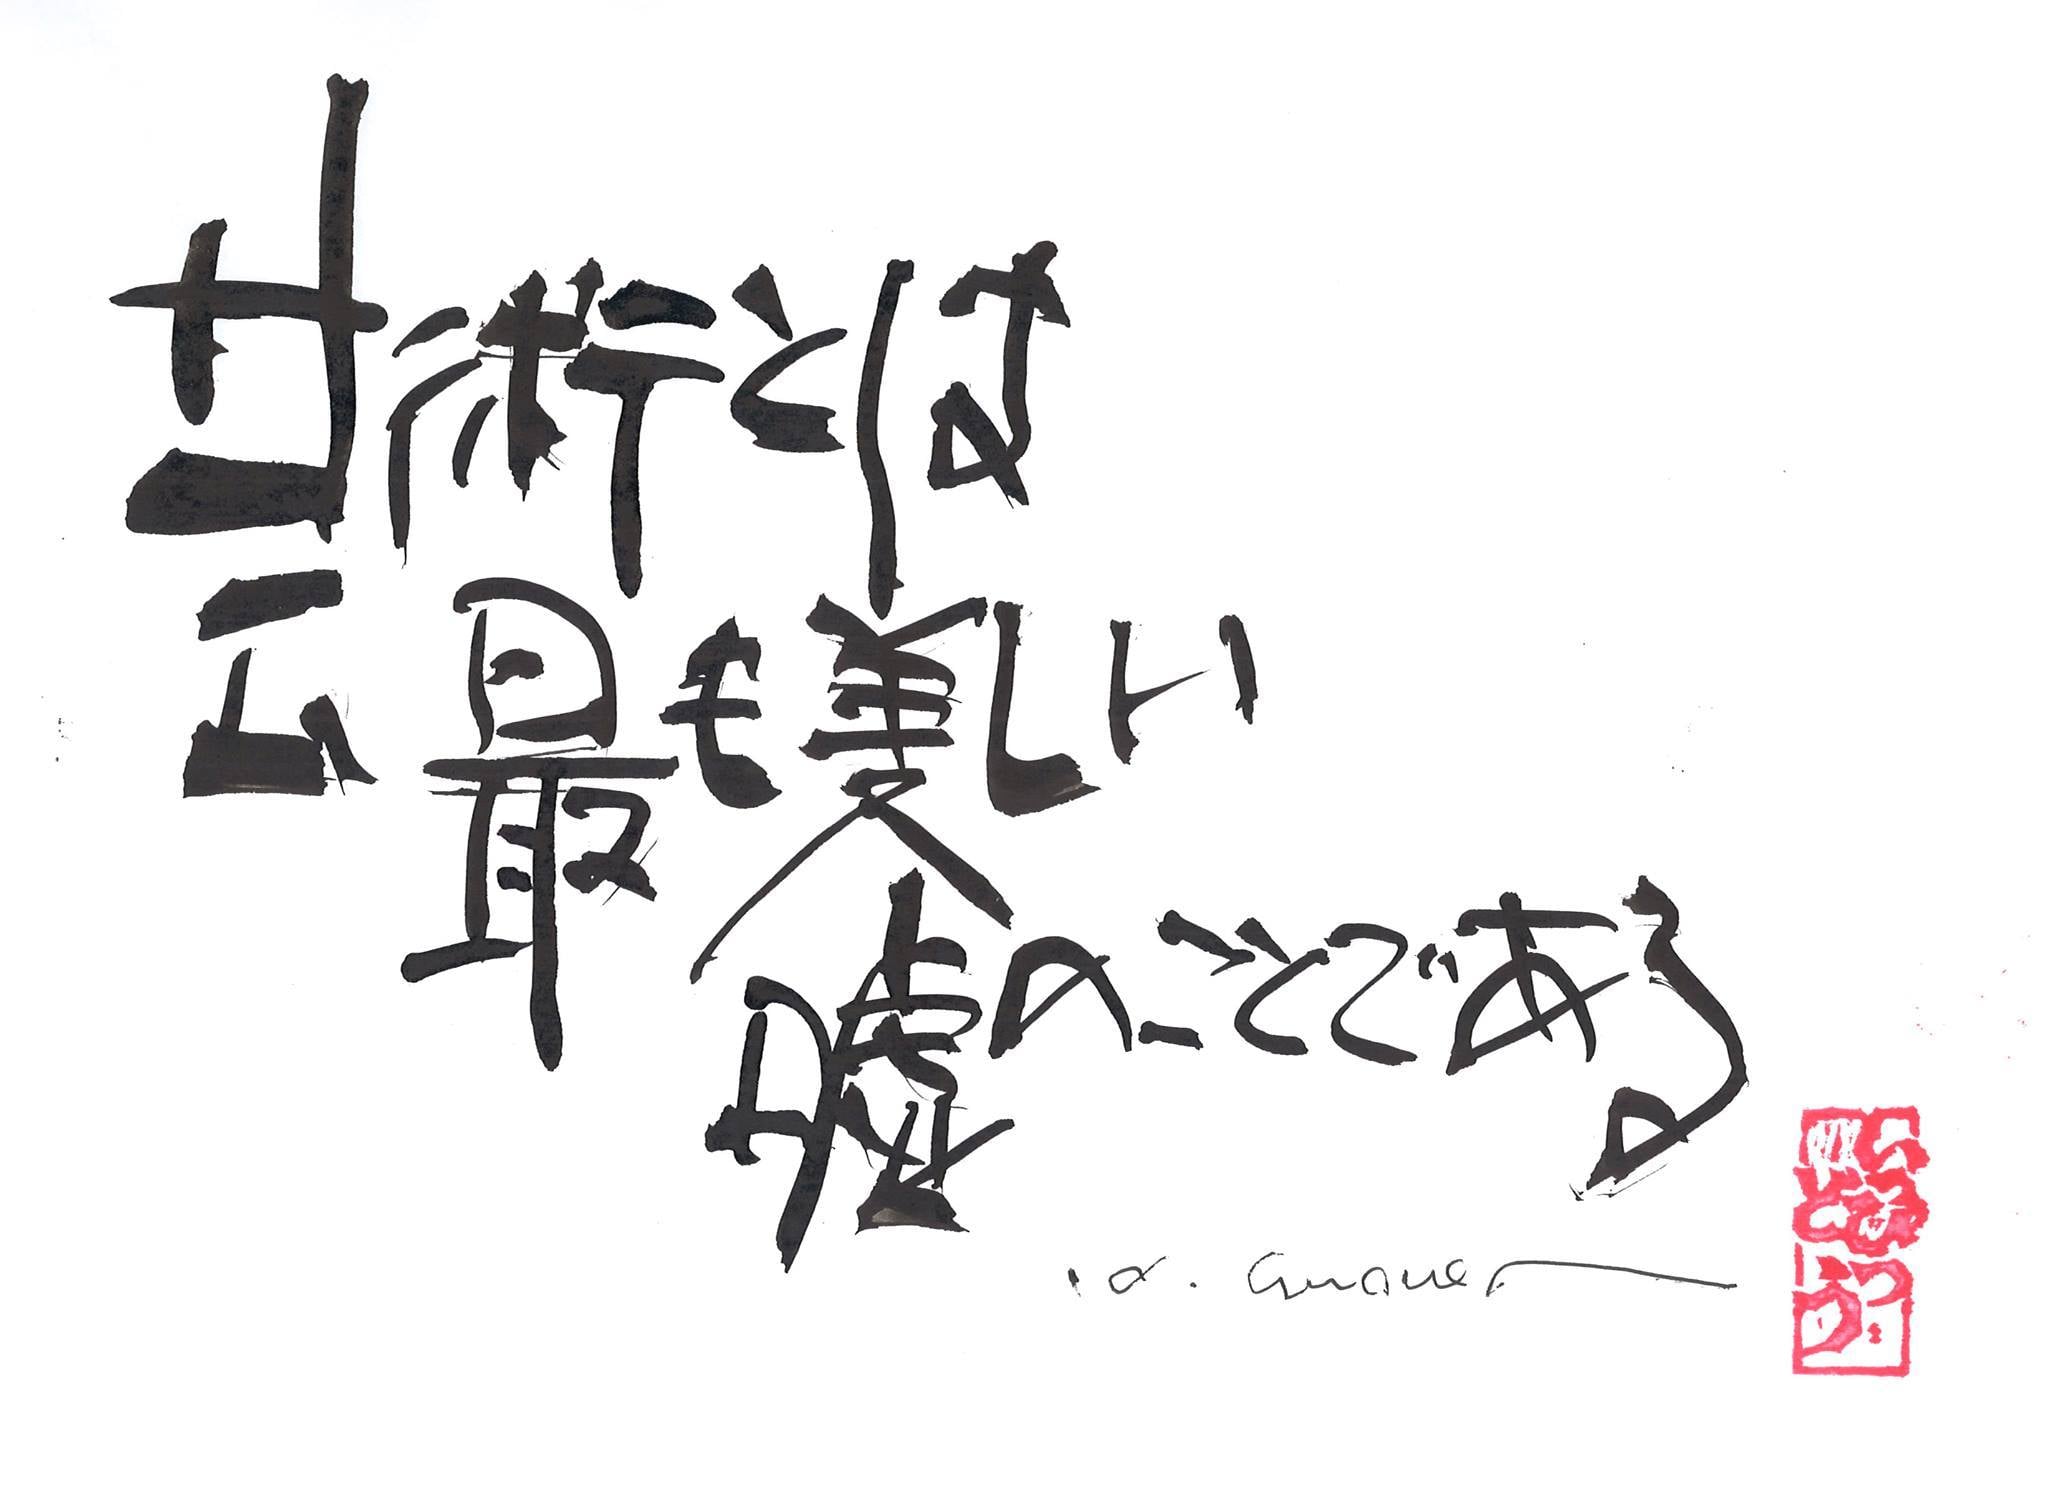 芸術とは
最も美しい
嘘のことである